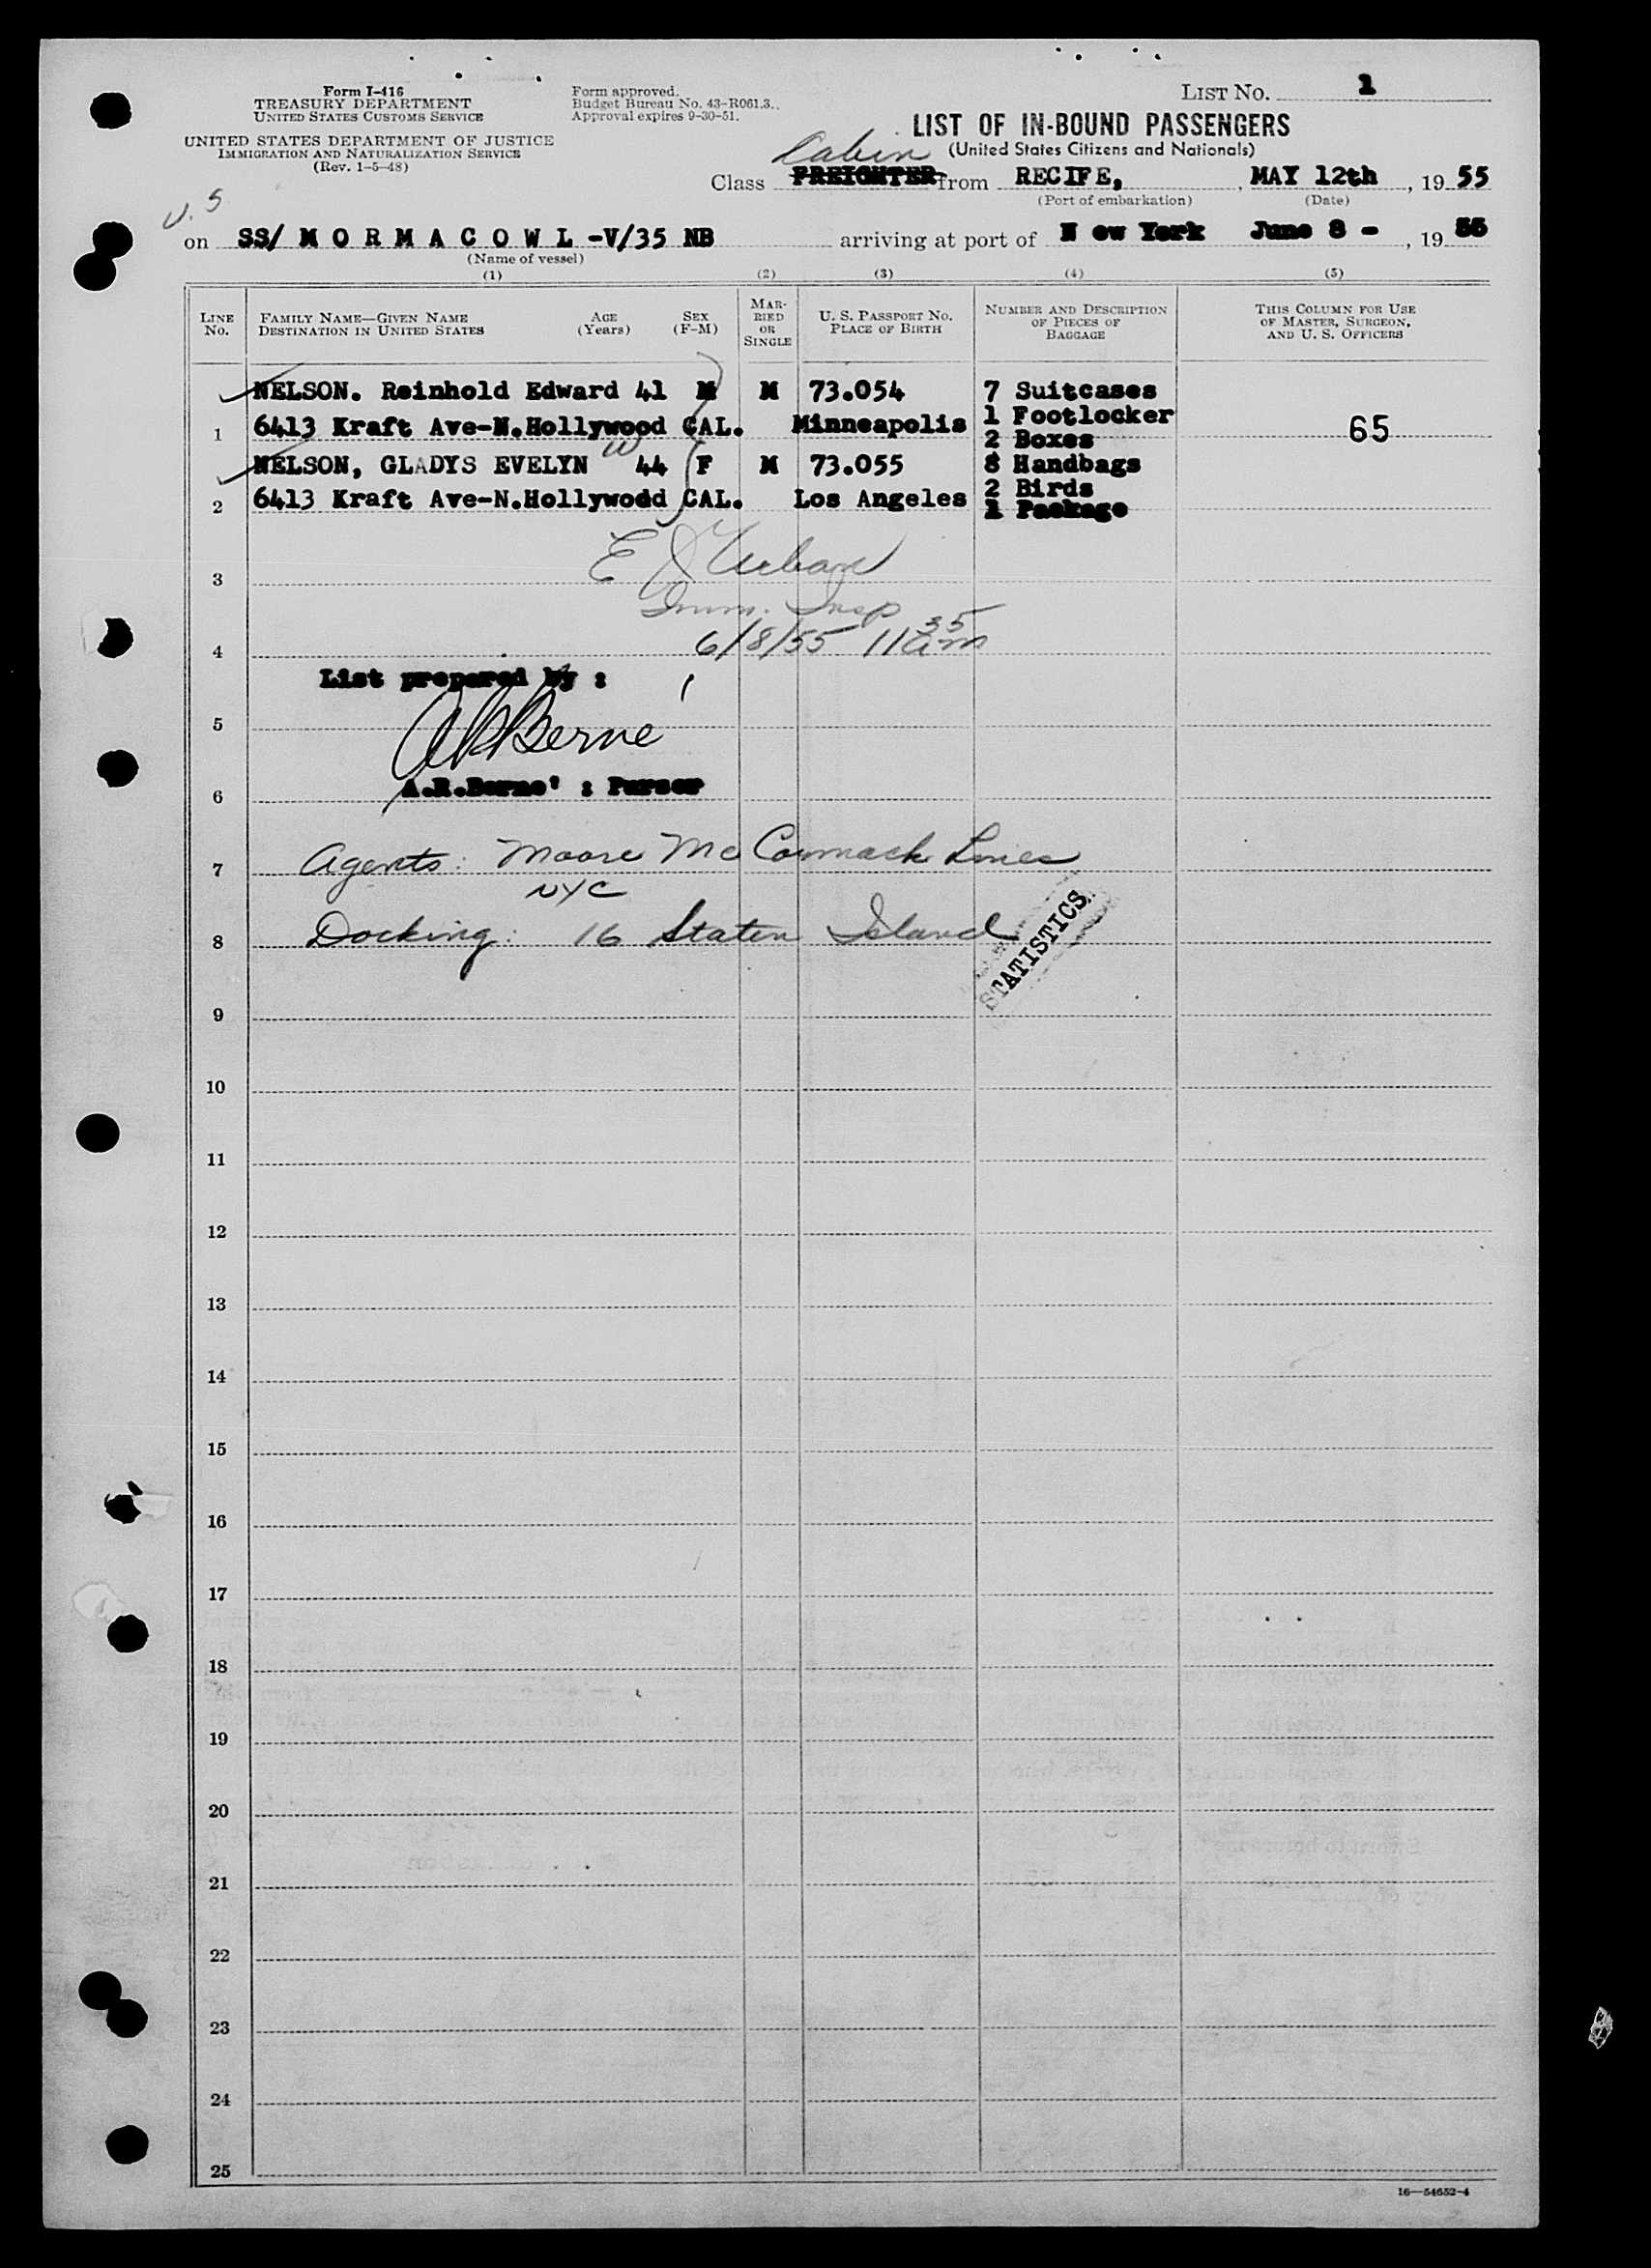 Form I-416
TREASURY DEPARTMENT
UNITED STATES CUSTOMS SERVICE
UNITED STATES DEPARTMENT OF JUSTICE
IMMIGRATION AND NATURALIZATION SERVICE
(Rev. 1-5-48)
Form approved.
Budget Bureau No. 43-R061.3.
Approval expires 9-30-51.
LIST NO. 1
LIST OF IN-BOUND PASSENGERS
(United States Citizens and Nationals)
Cabin
Class FREIGHTER from RECIFE, , MAY 12th , 19 55
(Port of embarkation) (Date)
U.S
on SS/ M O R M A C O W L -V/35 NB arriving at port of N ew York June 8 - , 19 55
(Name of vessel)
(1) (2) (3) (4) (5)
LINE NO.
FAMILY NAME—GIVEN NAME
DESTINATION IN UNITED STATES
AGE
(Years)
SEX
(F-M)
MAR-
RIED
OR
SINGLE
U. S. PASSPORT NO.
PLACE OF BIRTH
NUMBER AND DESCRIPTION
OF PIECES OF
BAGGAGE
THIS COLUMN FOR USE
OF MASTER, SURGEON,
AND U. S. OFFICERS
NELSON. Reinhold Edward 41 M M 73.054 7 Suitcases
1 Footlocker
1 6413 Kraft Ave-N.Hollywood CAL. Minneapolis 65
2 Boxes
W
NELSON, GLADYS EVELYN 44 F M 73.055 8 Handbags
2 Birds
2 6413 Kraft Ave-N.Hollywood CAL. Los Angeles
1 Package
E J Urban
3
Imm. Insp
4 6/8/55 11 35 am
List prepared by :
5 ARBerne
6 A.R.Berne' : Purser
7 Agents: Moore McCormack Lines
NYC
8 Docking: 16 Staten Island
STATISTICS
9
10
11
12
13
14
15
16
17
18
19
20
21
22
23
24
25
16—54652-4